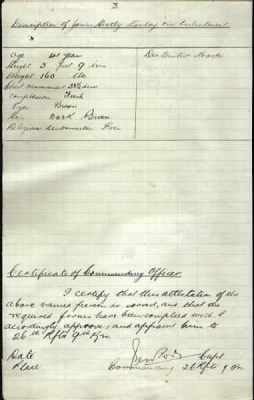 3
Description of James on Enlistment
Age 41 Years
Distinctive Marks
Height 5 feet 9 ins
Weight 160 lbs
Chest measurement
Complexion Fresh
Eyes Brown
Hair Dark Brown
Religious denomination Pres
Certificate of Commanding Officer
I certify that this attestation of the
above named person is correct, and that the
required forms have been complied with. I
accordingly approve, and appoint him to
26th Rfts 9th Bn
Date
Capt
Place
Commanding 26 Rfts 9 Bn